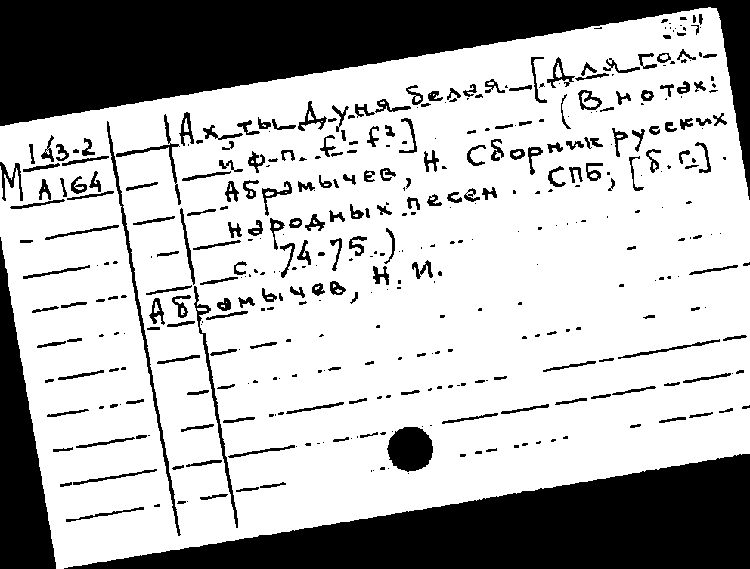 334
М 143-2
А164
Ах, ты Дуня белая [Для гол.
и ф-п. f¹-f².] (В нотах:
Абрамычев, Н. Сборник русских
народных песен. СПБ, [б.г.].
с. 74-75.)
Абрамычев, Н. И.